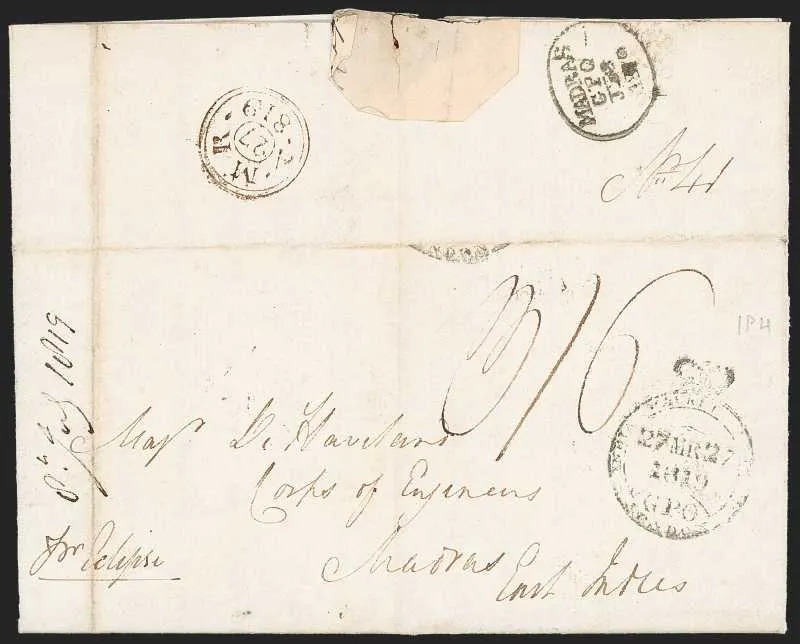 MADRAS
G.P.O
No. 41
MR
27
819
3/6
1P4
27 MR 27
1819
G.P.O
LONDON
8th July 1819
Majr De Havilland
Corps of Engineers
Madras
East Indies
Pr Eclipse